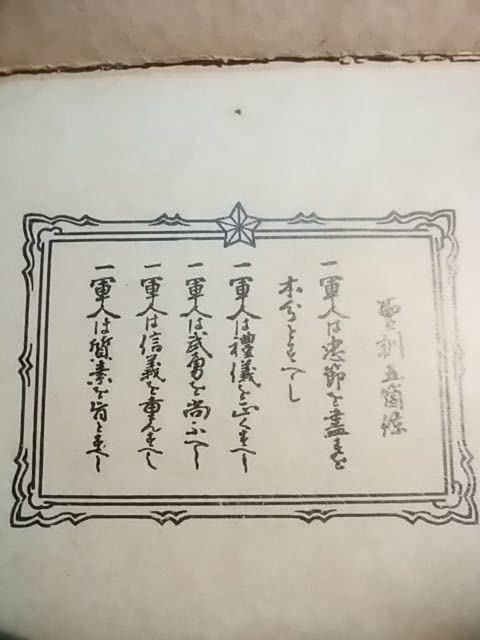 聖訓五箇條
一軍人は忠節を盡すを
本分とすへし
一軍人は禮儀を正くすへし
一軍人は武勇を尚ふへし
一軍人は信義を重んすへし
一軍人は質素を旨とすへし